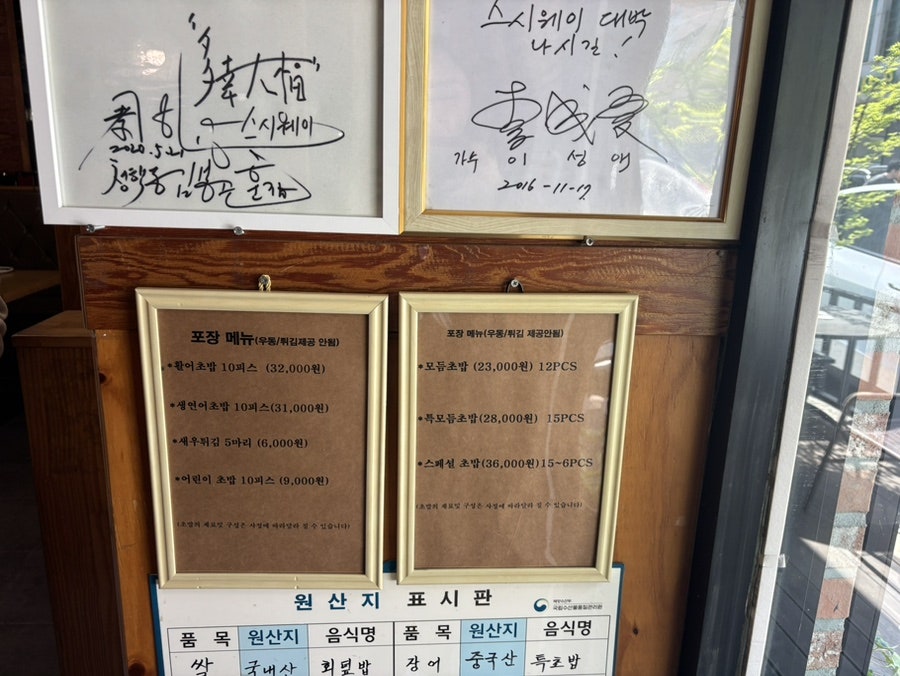 스시웨이
2020.5.21
스시웨이 대박
나시길!
가수 이 성 애
2016-11-17
포장 메뉴(우동/튀김제공 안됨)
*활어초밥 10피스 (32,000원)
*생연어초밥 10피스(31,000원)
*새우튀김 5마리 (6,000원)
*어린이 초밥 10피스 (9,000원)
(초밥의 재료및 구성은 사정에 따라달라 질 수 있습니다)
포장 메뉴(우동/튀김 제공안됨)
*모듬초밥 (23,000원) 12PCS
*특모듬초밥(28,000원) 15PCS
*스페셜 초밥(36,000원)15~6PCS
(초밥의 재료및 구성은 사정에 따라달라 질 수 있습니다)
원산지 표시판
해양수산부
국립수산물품질관리원
품 목 원산지 음식명 품 목 원산지 음식명
쌀 국내산 회덮밥 장어 중국산 특초밥